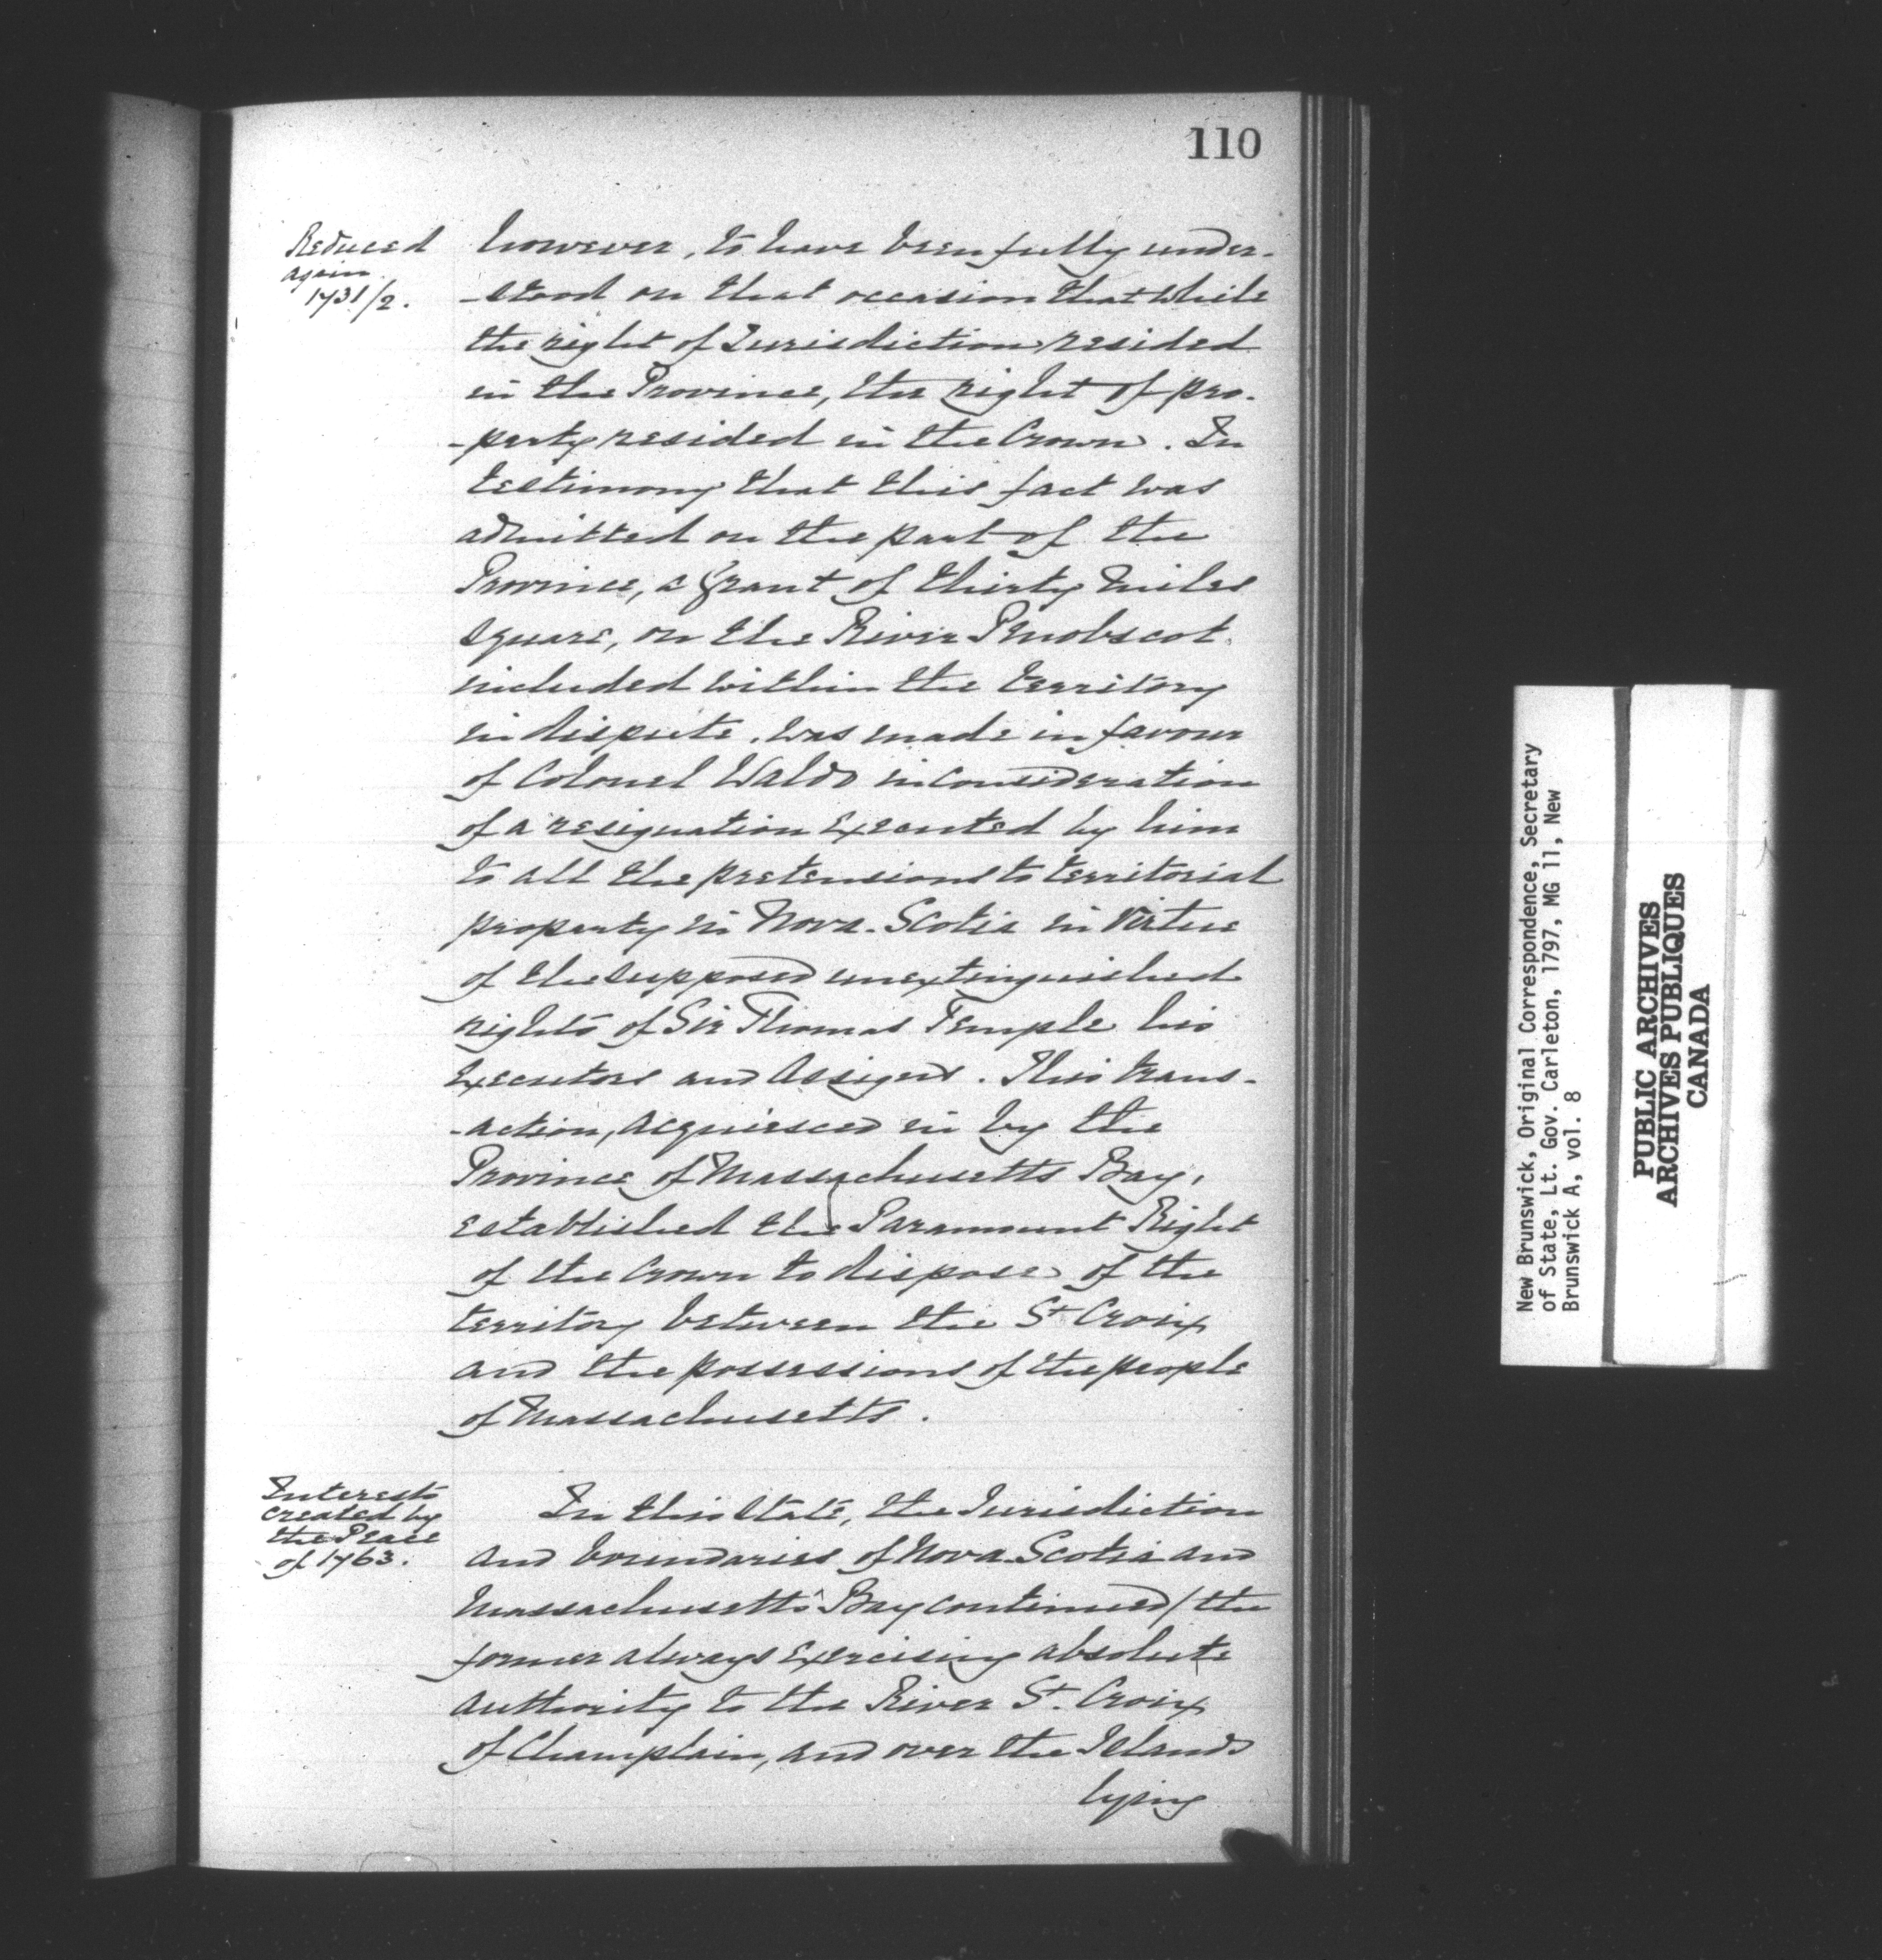 110
Reduced
again
1731/2.
however, to have been fully under-
-stood on that occasion that while
the right of Jurisdiction resided
in the Province, the right of pro-
-perty resided in the Crown. In
testimony that this fact was
admitted on the part of the
Province, a grant of thirty miles
square, on the River Penobscot
included within the territory
in dispute, was made in favour
of Colonel Waldo in consideration
of a resignation executed by him
to all the pretensions to territorial
property in Nova-Scotia in virtue
of the supposed unextinguished
rights of Sir Thomas Temple his
Executors and Assigns. This trans-
-action, acquiesced in by the
Province of Massachusetts Bay,
established the Paramount Right
of the Crown to dispose of the
territory between the St Croix
and the possessions of the people
of Massachusetts.
Interests
created by
the Peace
of 1763.
In this state, the Jurisdiction
and boundaries of Nova-Scotia and
Massachusetts Bay continued / the
former always exercising absolute
authority to the River St. Croix
of Champlain, and over the Islands
lying
New Brunswick, Original Correspondence, Secretary
of State, Lt. Gov. Carleton, 1797, MG 11, New
Brunswick A, vol. 8
PUBLIC ARCHIVES
ARCHIVES PUBLIQUES
CANADA